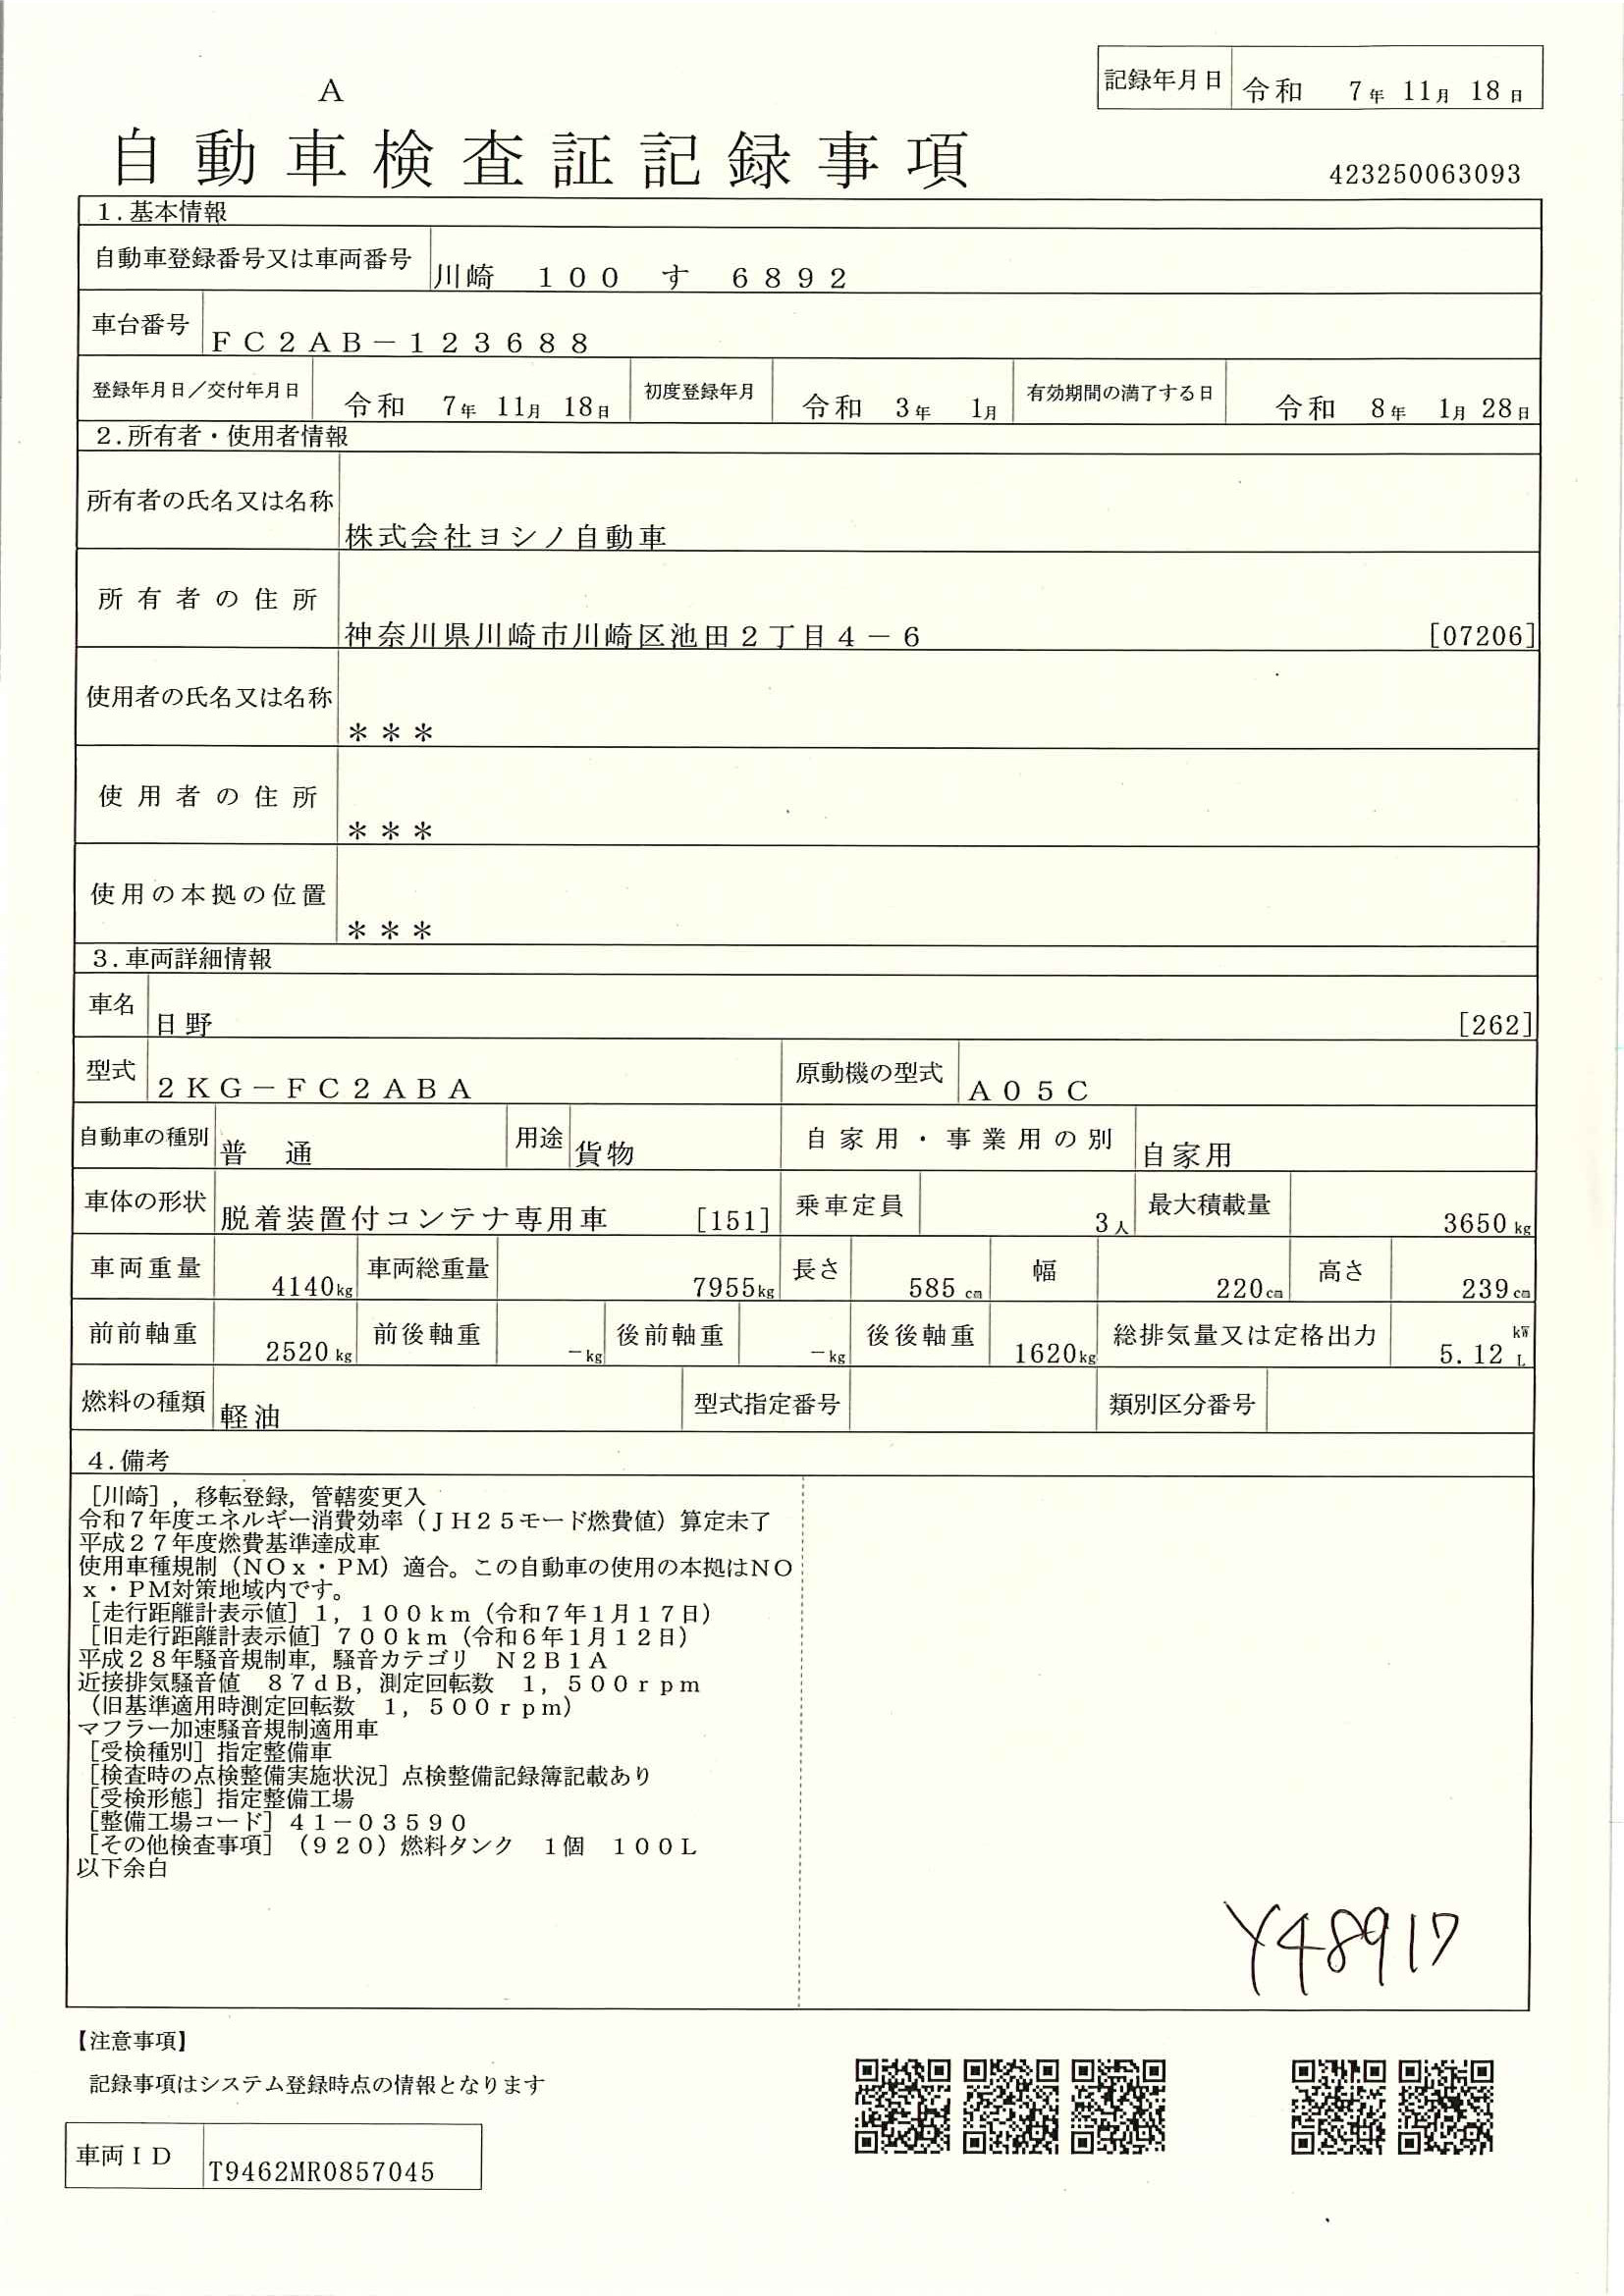 A
記録年月日 令和 7年 11月 18日
自動車検査証記録事項
423250063093
1.基本情報
自動車登録番号又は車両番号 川崎 100 す 6892
車台番号 FC2AB-123688
登録年月日/交付年月日 令和 7年 11月 18日 初度登録年月 令和 3年 1月 有効期間の満了する日 令和 8年 1月 28日
2.所有者・使用者情報
所有者の氏名又は名称 株式会社ヨシノ自動車
所有者の住所 神奈川県川崎市川崎区池田2丁目4-6 [07206]
使用者の氏名又は名称 ***
使用者の住所 ***
使用の本拠の位置 ***
3.車両詳細情報
車名 日野 [262]
型式 2KG-FC2ABA 原動機の型式 A05C
自動車の種別 普通 用途 貨物 自家用・事業用の別 自家用
車体の形状 脱着装置付コンテナ専用車 [151] 乗車定員 3人 最大積載量 3650kg
車両重量 4140kg 車両総重量 7955kg 長さ 585cm 幅 220cm 高さ 239cm
前前軸重 2520kg 前後軸重 -kg 後前軸重 -kg 後後軸重 1620kg 総排気量又は定格出力 5.12 kW L
燃料の種類 軽油 型式指定番号 類別区分番号
4.備考
[川崎],移転登録,管轄変更入
令和7年度エネルギー消費効率(JH25モード燃費値)算定未了
平成27年度燃費基準達成車
使用車種規制(NOx・PM)適合。この自動車の使用の本拠はNO
x・PM対策地域内です。
[走行距離計表示値]1,100km(令和7年1月17日)
[旧走行距離計表示値]700km(令和6年1月12日)
平成28年騒音規制車,騒音カテゴリ N2B1A
近接排気騒音値 87dB,測定回転数 1,500rpm
(旧基準適用時測定回転数 1,500rpm)
マフラー加速騒音規制適用車
[受検種別]指定整備車
[検査時の点検整備実施状況]点検整備記録簿記載あり
[受検形態]指定整備工場
[整備工場コード]41-03590
[その他検査事項](920)燃料タンク 1個 100L
以下余白
Y48917
【注意事項】
記録事項はシステム登録時点の情報となります
車両ID T9462MR0857045